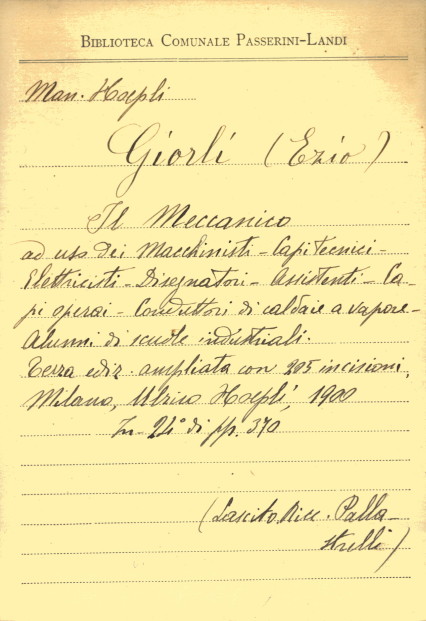 BIBLIOTECA COMUNALE PASSERINI-LANDI
Man. Hoepli
Giorli (Ezio)
Il Meccanico
ad uso dei Macchinisti - Capitecnici -
Elettricisti - Disegnatori - Assistenti - Ca-
pi operai - Conduttori di caldaie a vapore -
Alunni di scuole industriali.
Terza ediz. ampliata con 205 incisioni,
Milano, Ulrico Hoepli, 1900
In 24° di pp. 370
(Lascito Ricc. Palla-
strelli)